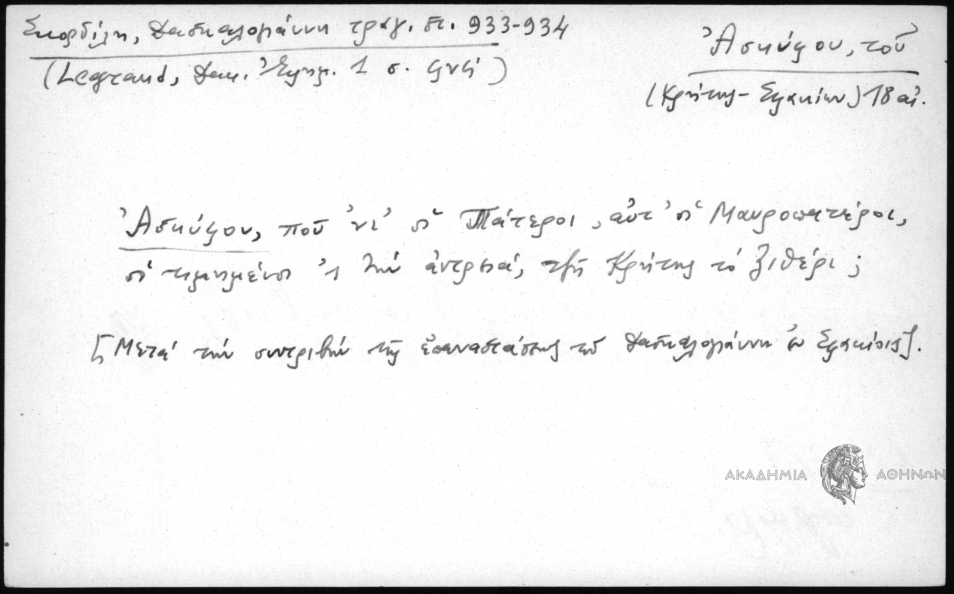 Σκορδίλη, Δασκαλογιάννη τραγ. στ. 933-934
(Legrand, Δημ. 1 σ.)
Ἀσκύφου, τοῦ
(Κρήτης - Σφακίων) 18 αἰ.
Ἀσκύφου, ποῦ 'ν' οἱ Πάτεροι, αὐτ' οἱ Μαυροπατέροι,
οἱ τιμημένοι 'ς τὴν ἀντρειά, τσῆ Κρήτης τὸ ξιθέρι;
[Μετὰ τὴν συντριβὴν τῆς ἐπαναστάσεως τοῦ Δασκαλογιάννη ἐν Σφακίοις].
ΑΚΑΔΗΜΙΑ ΑΘΗΝΩΝ